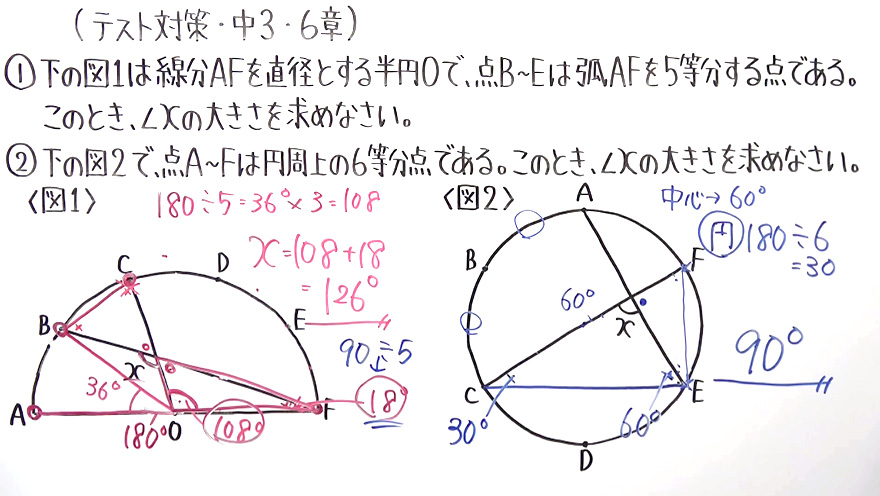 (テスト対策・中3・6章)
①下の図1は線分AFを直径とする半円Oで、点B~Eは弧AFを5等分する点である。
このとき、∠xの大きさを求めなさい。
②下の図2で、点A~Fは円周上の6等分点である。このとき、∠xの大きさを求めなさい。
〈図1〉
180÷5=36°×3=108
x=108+18
=126°
C
D
B
E
90÷5
x
36°
A
O
F
18°
180°
108°
〈図2〉
A
中心→60°
円 180÷6
=30
B
F
60°
x
90°
C
E
30°
60°
D